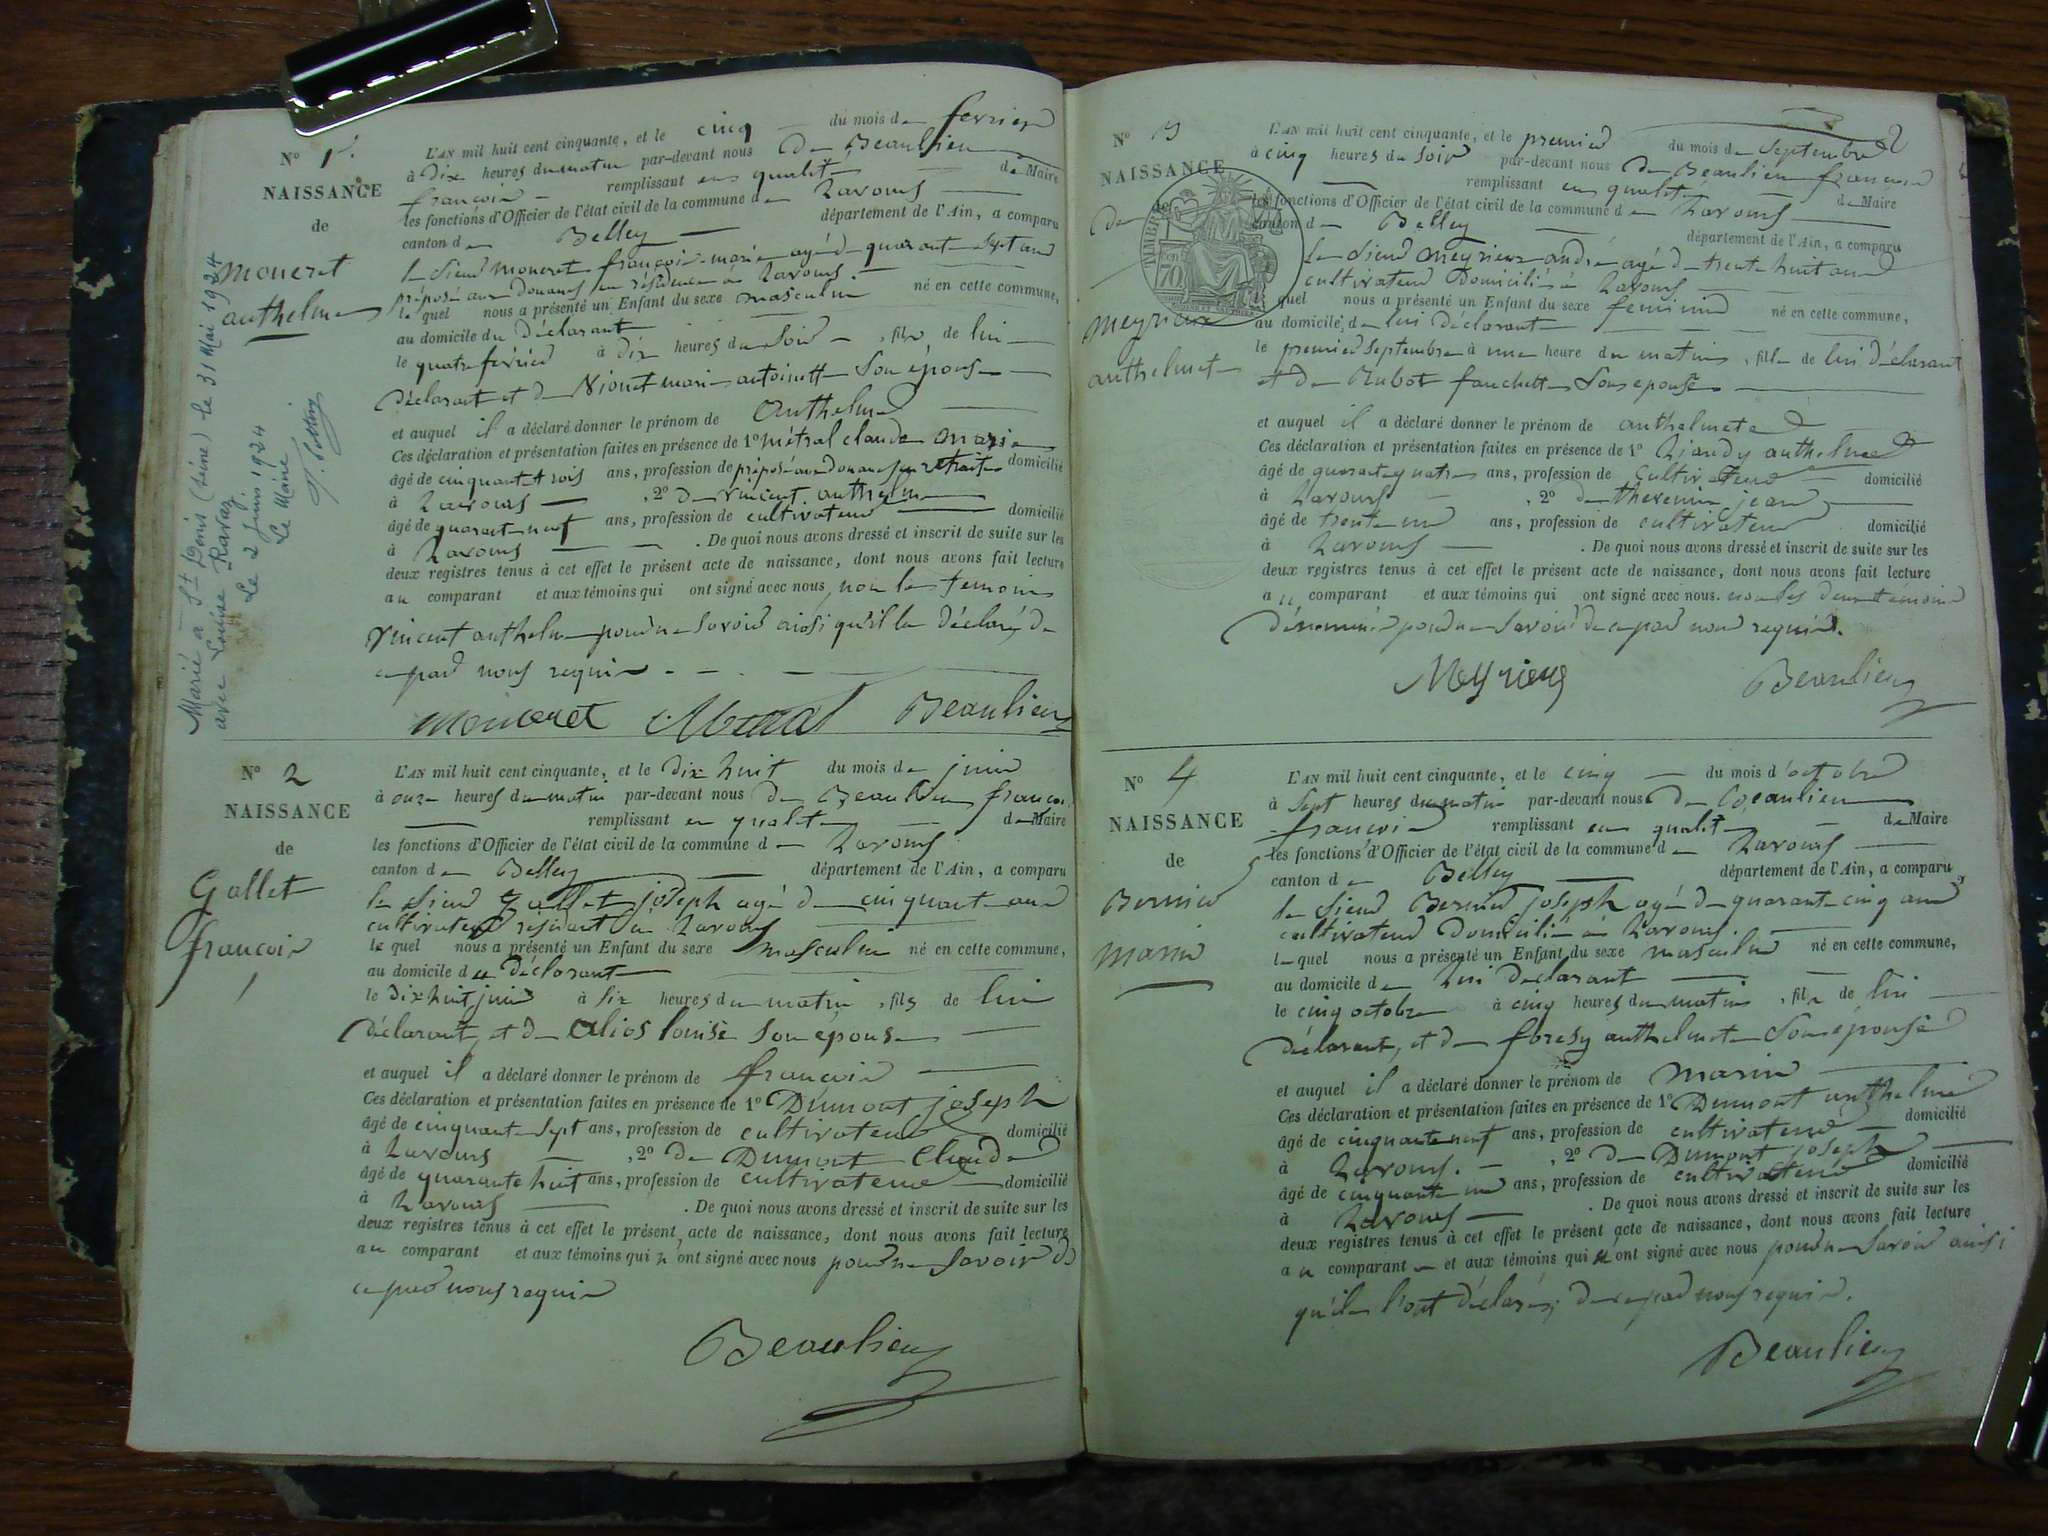 N° 1er
NAISSANCE
de
moneret
anthelme
Marié à St Denis (seine) le 31 Mai 1924
avec Louise Ravaz
Le 2 juin 1924
Le Maire
L'AN mil huit cent cinquante, et le cinq du mois de fevrier
à Dix heures du matin par-devant nous De Beaulieu
françois remplissant en qualité de Maire
les fonctions d'Officier de l'état civil de la commune de Lavours
canton de Belley département de l'Ain, a comparu
le Sieur moneret françois marie agé de quarante sept ans
préposé aux douanes en résidence à Lavours.
le quel nous a présenté un Enfant du sexe masculin né en cette commune,
au domicile du Déclarant
le quatre février à dix heures du soir, fils de lui
Déclarant et de marie antoinette Son épouse
et auquel il a déclaré donner le prénom de Anthelme
Ces déclaration et présentation faites en présence de 1° métral claude marie
âgé de cinquante trois ans, profession de préposé aux douanes en retraite domicilié
à Lavours, 2° De vincent anthelme
âgé de quarante neuf ans, profession de cultivateur domicilié
à Lavours. De quoi nous avons dressé et inscrit de suite sur les
deux registres tenus à cet effet le présent acte de naissance, dont nous avons fait lecture
au comparant et aux témoins qui ont signé avec nous, non le temoin
vincent anthelme pour ne savoir ainsi qu'il l'a déclaré de
ce par nous requis
moneret Métral Beaulieu
N° 2
NAISSANCE
de
Gallet
françois
L'AN mil huit cent cinquante, et le dix huit du mois de juin
à onze heures du matin par-devant nous De Beaulieu françois
remplissant en qualité de Maire
les fonctions d'Officier de l'état civil de la commune de Lavours
canton de Belley département de l'Ain, a comparu
le Sieur Gallet joseph agé de cinquante ans
cultivateur résidant à Lavours
le quel nous a présenté un Enfant du sexe masculin né en cette commune,
au domicile du Déclarant
le dix huit juin à six heures du matin, fils de lui
Déclarant, et de Alios louise son épouse
et auquel il a déclaré donner le prénom de françois
Ces déclaration et présentation faites en présence de 1° Dumont joseph
âgé de cinquante sept ans, profession de cultivateur domicilié
à Lavours, 2° de Dumont Claude
âgé de quarante huit ans, profession de cultivateur domicilié
à Lavours. De quoi nous avons dressé et inscrit de suite sur les
deux registres tenus à cet effet le présent acte de naissance, dont nous avons fait lecture
au comparant et aux témoins qui n'ont signé avec nous pour ne savoir de
ce par nous requis
Beaulieu
2
N° 3
NAISSANCE
de
meyrieux
anthelmete
TIMBRE
70
L'AN mil huit cent cinquante, et le premier du mois de Septembre
à cinq heures du soir par-devant nous De Beaulieu françois
remplissant en qualité de Maire
les fonctions d'Officier de l'état civil de la commune de Lavours
canton de Belley département de l'Ain, a comparu
le Sieur meyrieux andré agé de trente huit ans
cultivateur Domicilié à Lavours
le quel nous a présenté un Enfant du sexe feminin né en cette commune,
au domicile de lui Déclarant
le premier Septembre à une heure du matin, fille de lui déclarant
et de Rubot fanchette Son epouse
et auquel il a déclaré donner le prénom de anthelmete
Ces déclaration et présentation faites en présence de 1° Liaudy anthelme
âgé de quarante quatre ans, profession de cultivateur domicilié
à Lavours, 2° de thevenin jean
âgé de trente un ans, profession de cultivateur domicilié
à Lavours. De quoi nous avons dressé et inscrit de suite sur les
deux registres tenus à cet effet le présent acte de naissance, dont nous avons fait lecture
au comparant et aux témoins qui ont signé avec nous. non les deux temoins
dénommés pour ne savoir de ce par nous requis.
Meyrieux Beaulieu
N° 4
NAISSANCE
de
Bernier
marin
L'AN mil huit cent cinquante, et le cinq du mois d'octobre
à sept heures du matin par-devant nous De Beaulieu
françois remplissant en qualité de Maire
les fonctions d'Officier de l'état civil de la commune de Lavours
canton de Belley département de l'Ain, a comparu
le Sieur Bernier joseph agé de quarante cinq ans
cultivateur domicilié à Lavours.
le quel nous a présenté un Enfant du sexe masculin né en cette commune,
au domicile de lui declarant
le cinq octobre à cinq heures du matin, fils de lui
déclarant, et de anthelmete Son épouse
et auquel il a déclaré donner le prénom de marin
Ces déclaration et présentation faites en présence de 1° Dumont anthelme
âgé de cinquante neuf ans, profession de cultivateur domicilié
à Lavours., 2° de Dumont joseph
âgé de cinquante un ans, profession de cultivateur domicilié
à Lavours. De quoi nous avons dressé et inscrit de suite sur les
deux registres tenus à cet effet le présent acte de naissance, dont nous avons fait lecture
au comparant et aux témoins qui n'ont signé avec nous pour ne savoir ainsi
qu'ils l'ont déclaré, de ce par nous requis.
Beaulieu